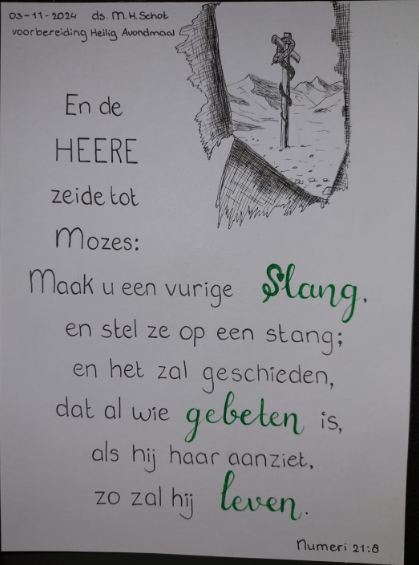 03-11-2024 ds. M.H. Schot
voorbereiding Heilig Avondmaal
En de
HEERE
zeide tot
Mozes:
Maak u een vurige Slang,
en stel ze op een stang;
en het zal geschieden,
dat al wie gebeten is,
als hij haar aanziet,
zo zal hij leven.
Numeri 21:8